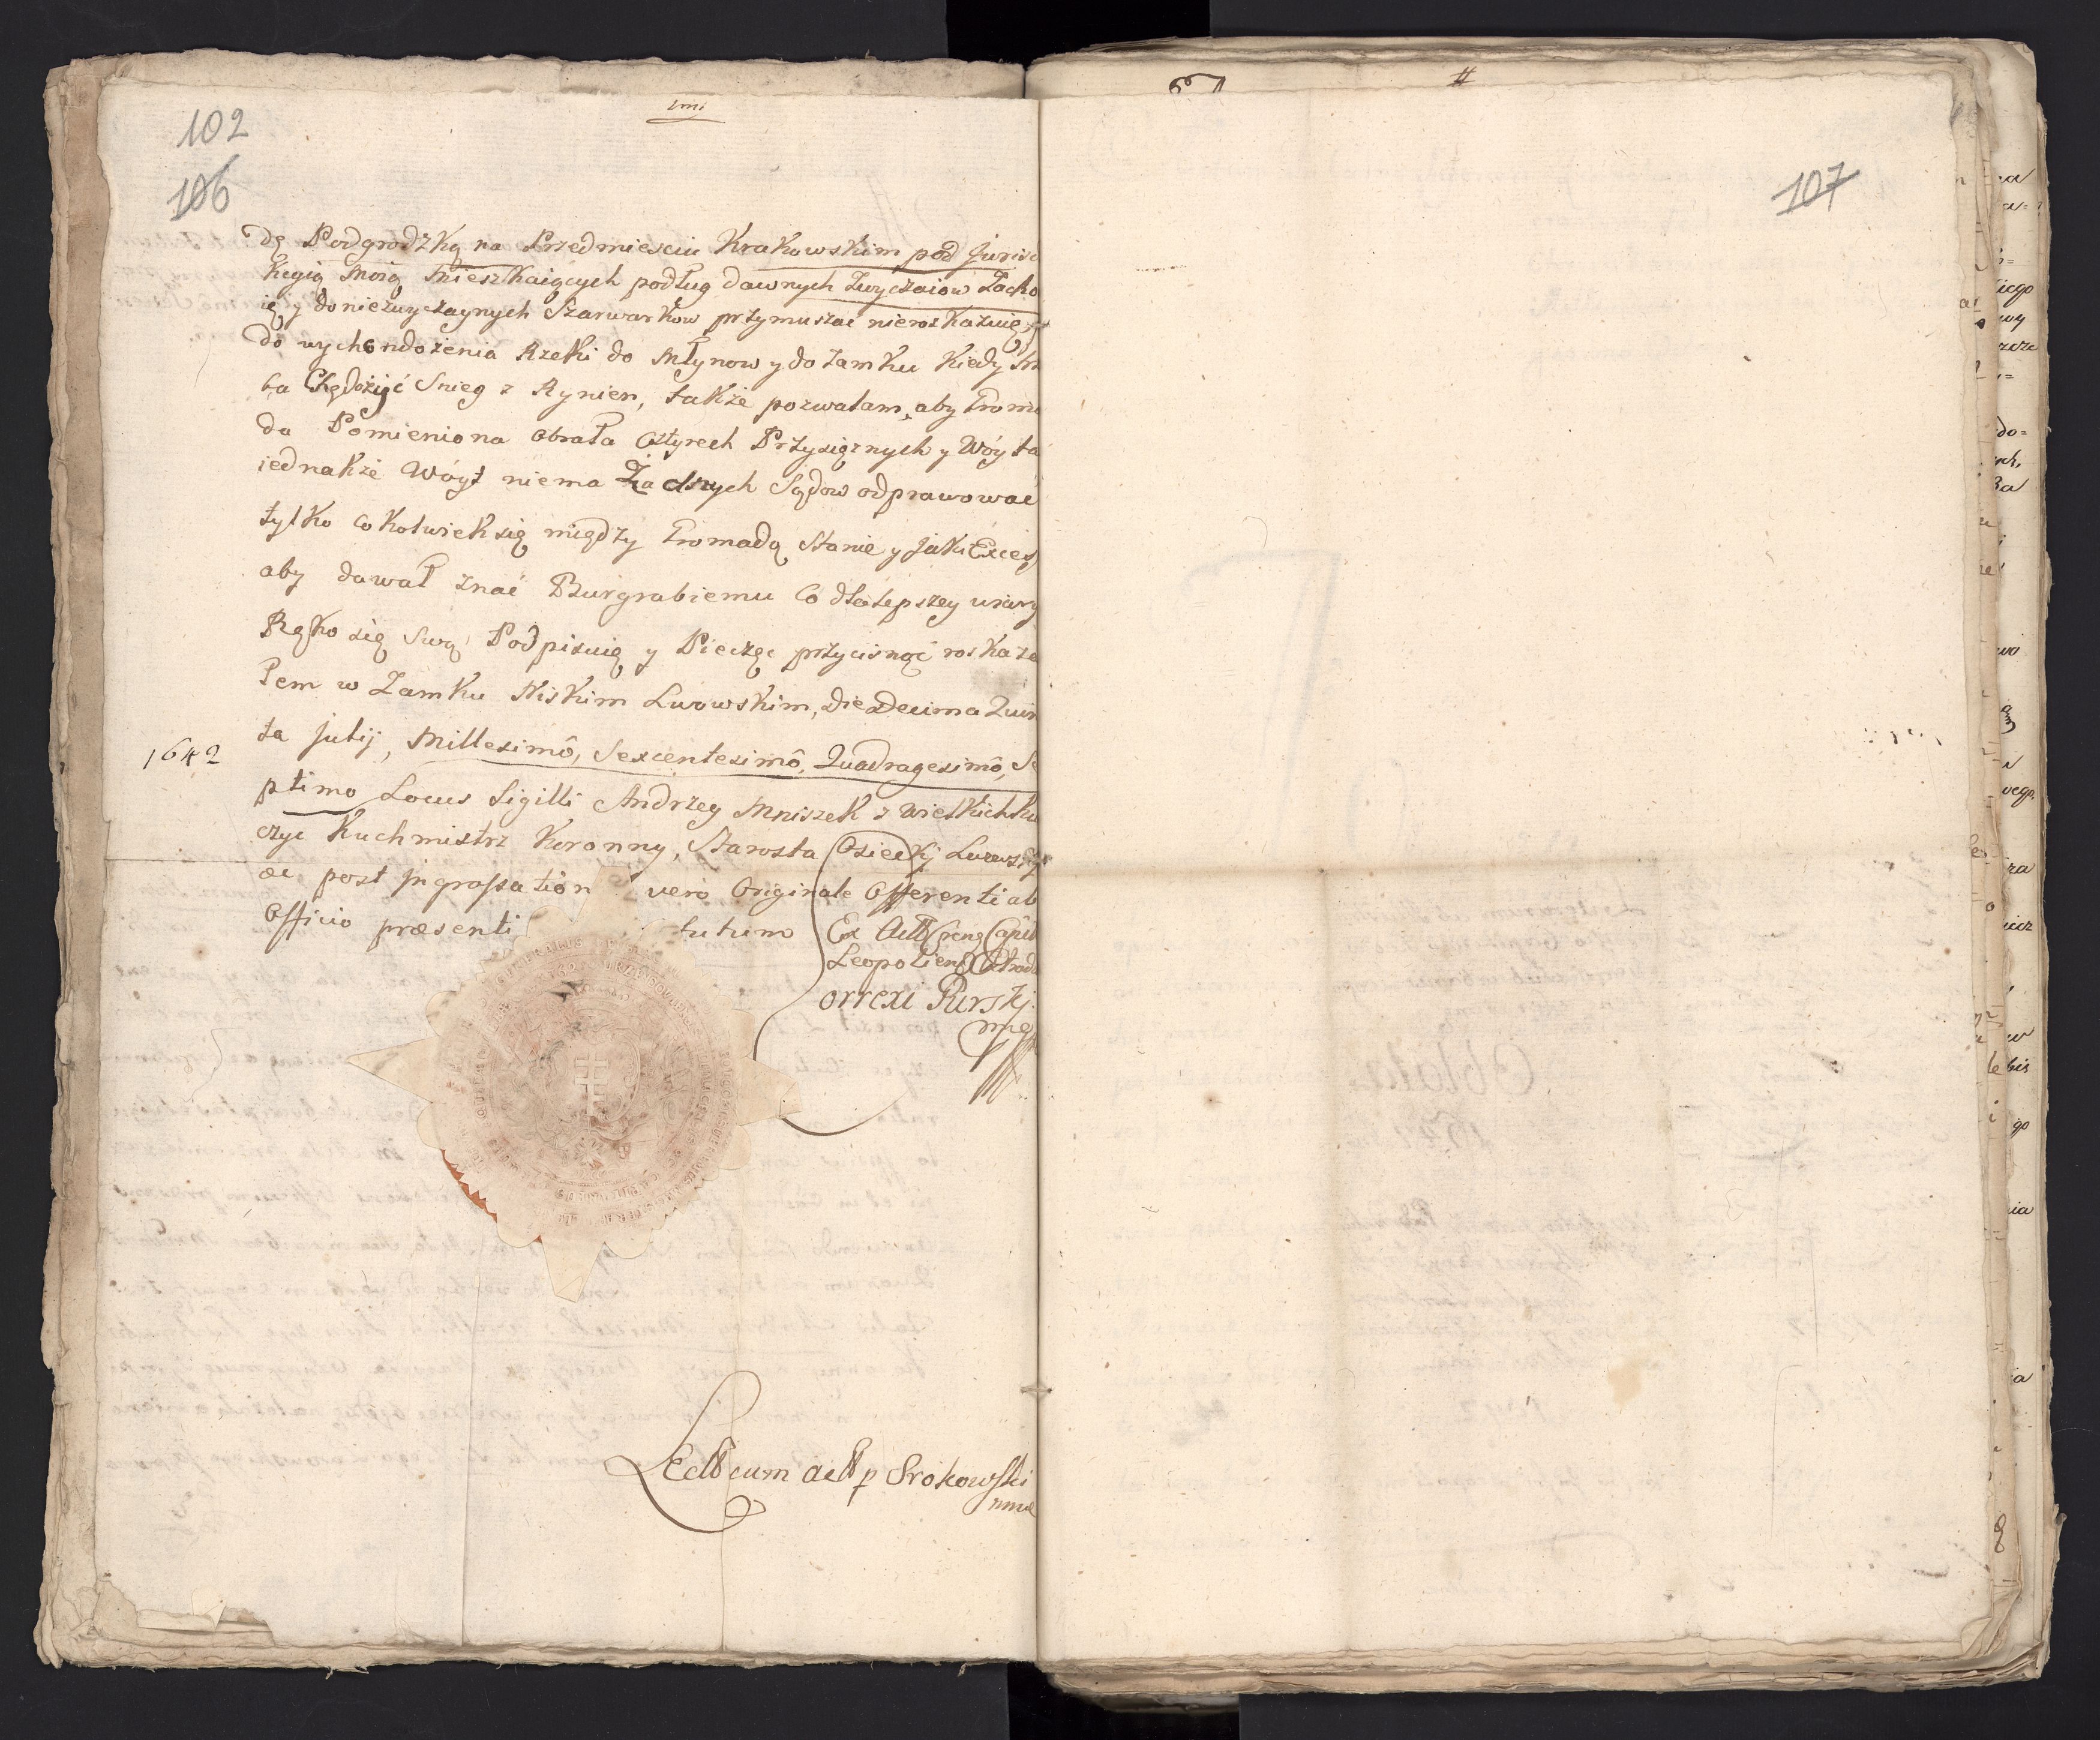 102
106
dę Podgrodzką na Przedmiesciu Krakowskim pod Jurisd
kcyią Moią Mieszkaiących podług dawnych Zwyczaiow Zacho
ię y do niezwyczaynych Szarwarkow przymuszać nieroskazuię,
do wychendożenia Rzeki do Młynow y do Zamku kiedy
ba Chędożyć Snieg z Rynien, także pozwalam, aby Groma
da Pomieniona obrała Cztyrech Przysięznych y Wóyta
iednakże Wóyt niema Zadnych Sądow odprawować
tylko cokolwiek się między Gromadą Stanie y Jaki Exces,
aby dawał znać Burgrabiemu Co dla lepszey wiary
Ręko się Swą Podpisuię y Pieczęc przycisnąć roskaza
łem w Zamku Niskim Lwowskim, Die Decima Quin
ta Julij, Millesimô, Sexcentesimô, Quadragesimô, Se
1642
ptimo Locus Sigilli Andrzey Mniszek z Wielkich Ku
czyc Kuchmistrz Koronny, Starosta Osiecky Lwowsky
ac post Jngrossation vero Originale Offerenti ab
Officio præsenti tutum
Ex Actis Capit
Leopolien
orrexi Purski
mp
Lectt cum actt p Srokowski
mp
107
Oblata